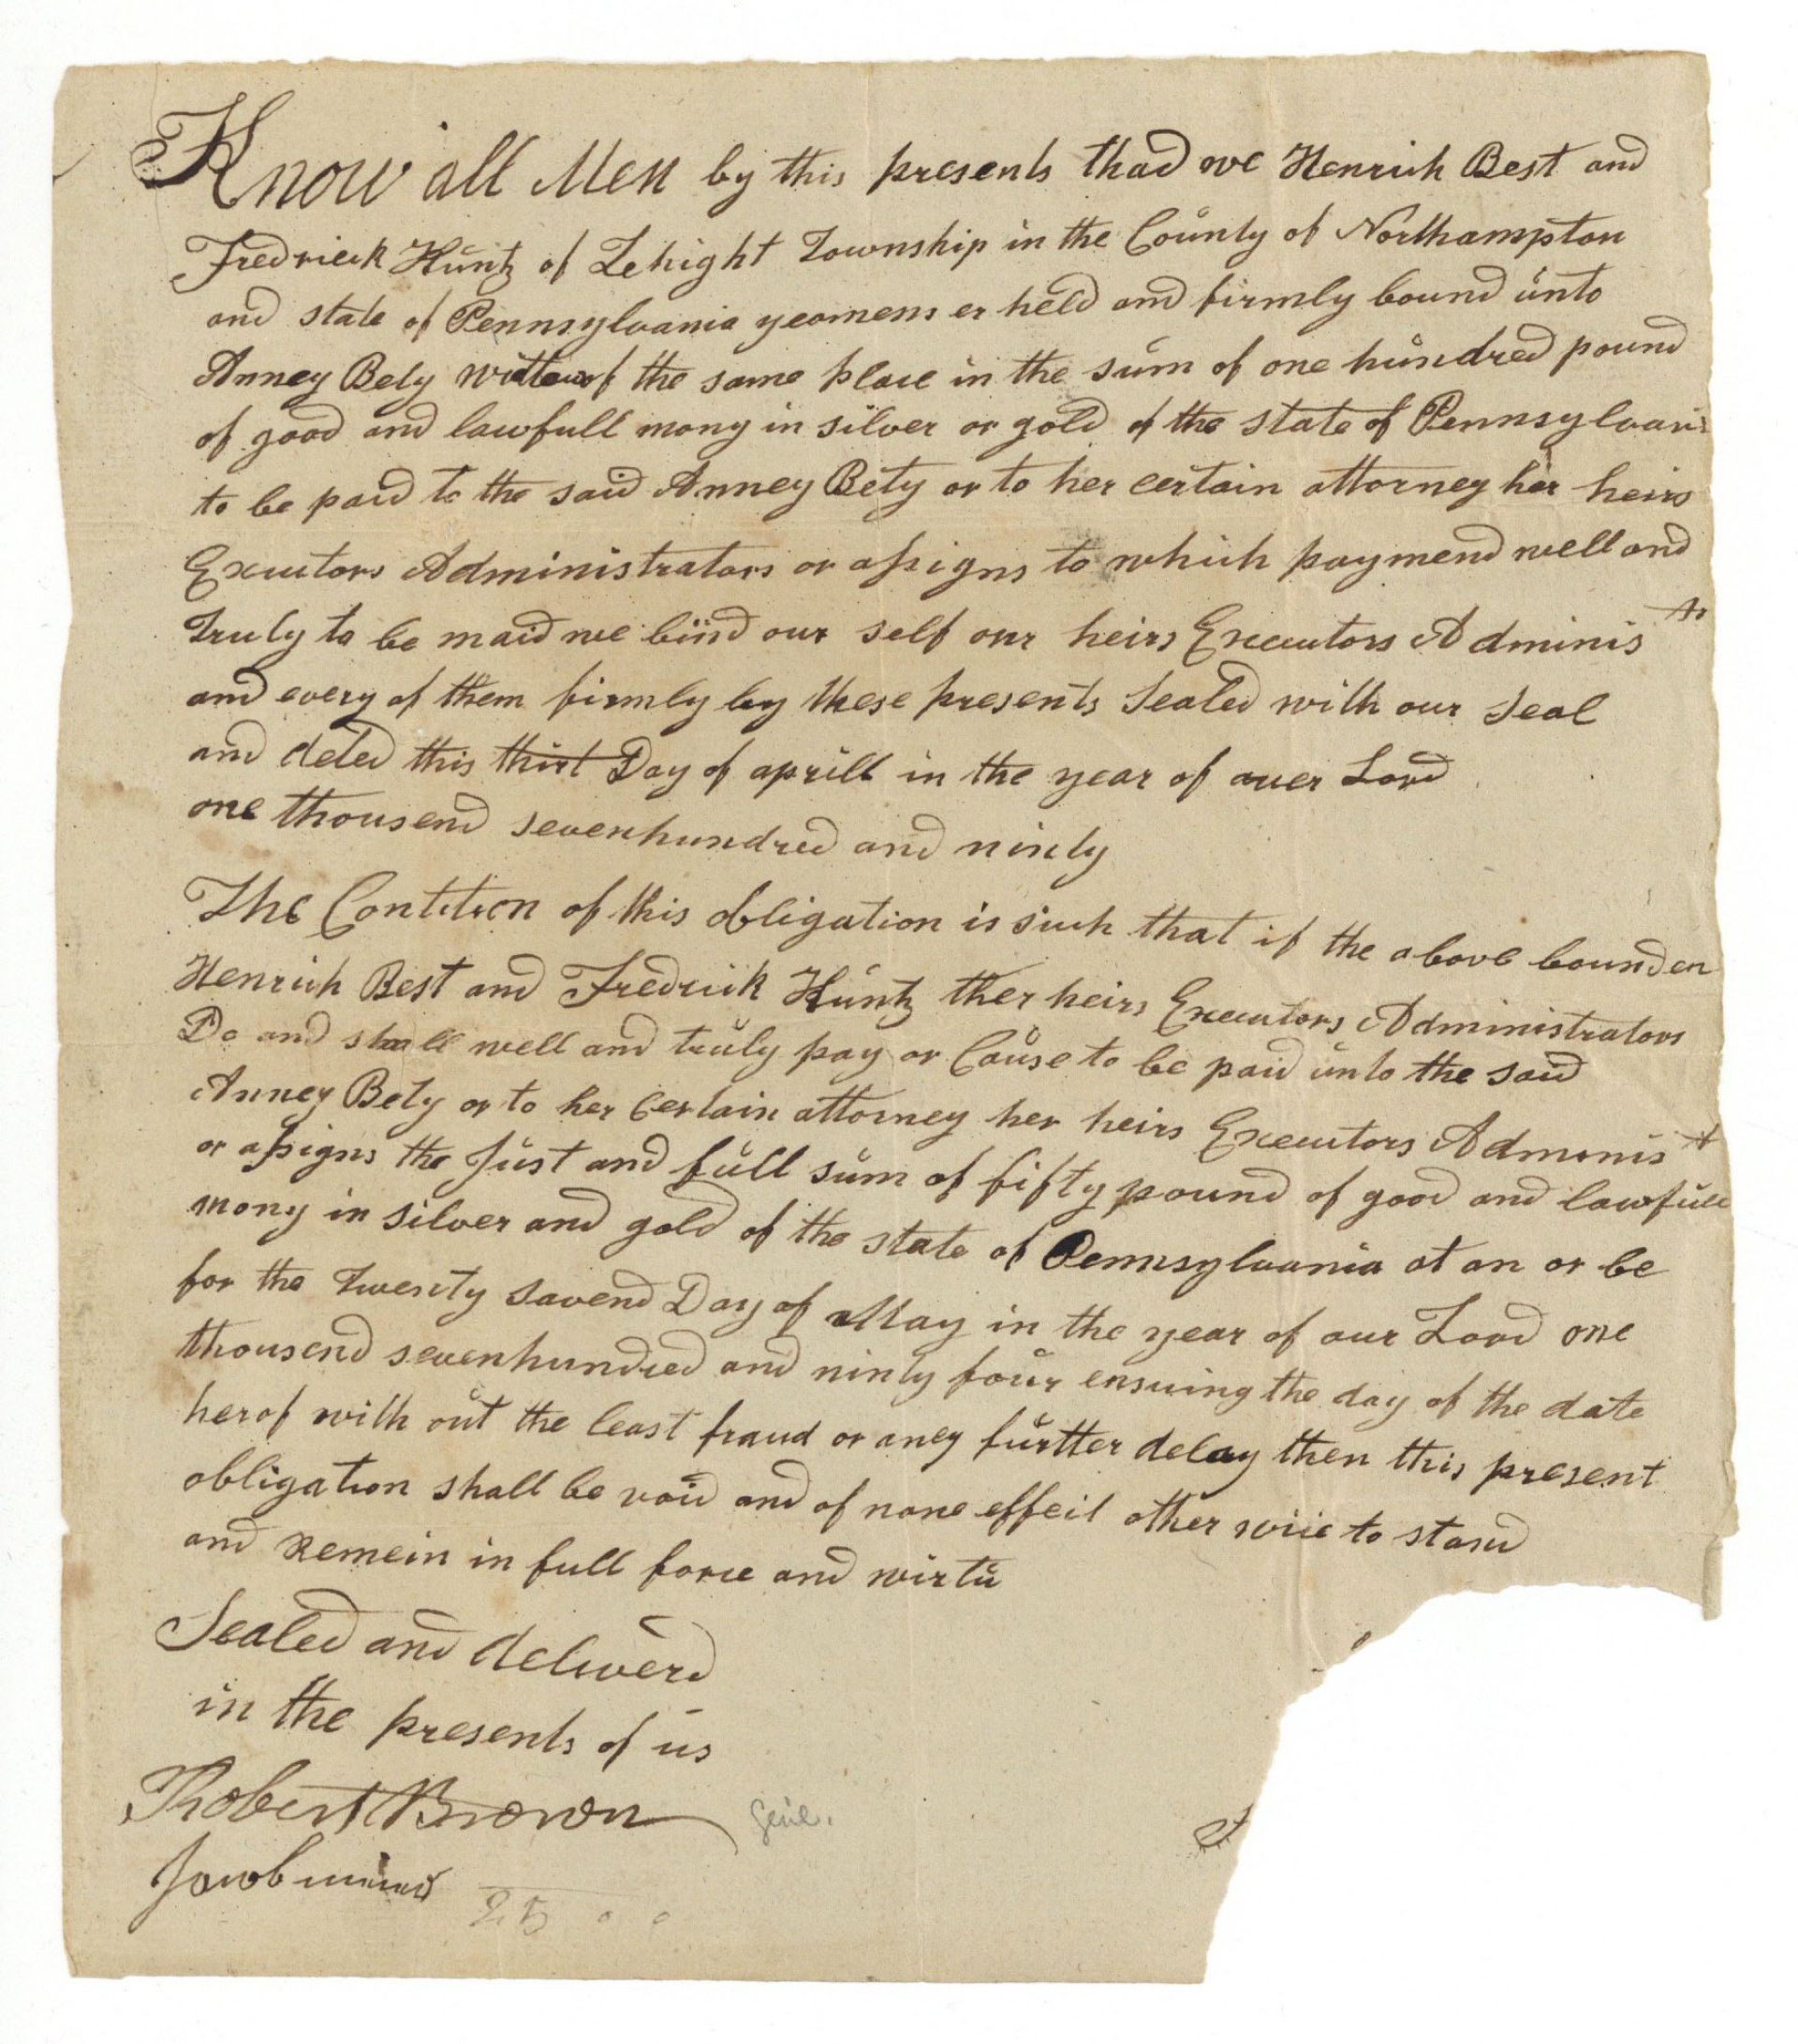 Know all Men by this presents thad we Henrich Best and
Fredrick Kuntz of Lehight Township in the County of Northampton
and state of Pennsylvania yeomens er held and firmly bound unto
Anney Bety of the same place in the sum of one hundred pound
of good and lawfull mony in silver or gold of the state of Pennsylvani
to be paid to the said Anney Bety or to her certain attorney her heirs
Executors Administrators or assigns to which paymend well and
Truly to be maid we biind our self our heirs Executors Adminis
and every of them firmly by these presents Sealed with our Seal
and deted this thirt Day of aprill in the year of auer Lord
one thousend sevenhundred and ninty
The Contition of this obligation is such that if the above bounden
Henrich Best and Fredrick Kuntz ther heirs Executors Administrators
Do and shall well and truly pay or Cause to be paid unto the said
Anney Bety or to her Certain attorney her heirs Executors Adminis
or assigns the Just and full sum of fifty pound of good and lawfull
mony in silver and gold of the state of Pennsylvania at an or be
for the Twenty Savend Day of May in the year of our Lord one
thousend sevenhundred and ninty four ensuing the day of the date
herof with out the least fraud or aney furtter delay then this present
obligation shall be void and of none effect other wiie to stand
and Remein in full force and wirtu
Sealed and deliverd
in the presents of us
Robert Brown
Jacob
25